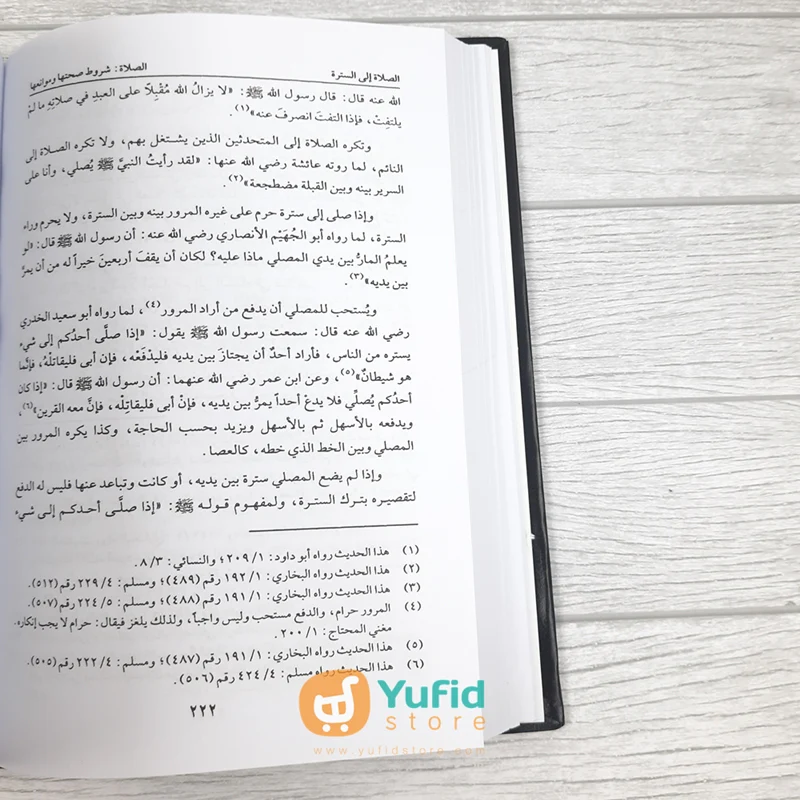 الصلاة إلى السترة
الصلاة: شروط صحتها وموانعها
الله عنه قال: قال رسول الله ﷺ: «لا يزالُ الله مُقْبِلاً على العبدِ في صلاتِهِ ما لمْ
يلتفِتْ، فإذا التفتَ انصرفَ عنه»(١).
وتكره الصلاة إلى المتحدثين الذين يشتغل بهم، ولا تكره الصلاة إلى
النائم، لما روته عائشة رضي الله عنها: «لقد رأيتُ النبيَّ ﷺ يُصلي، وأنا على
السرير بينه وبين القبلة مضطجعة»(٢).
وإذا صلى إلى سترة حرم على غيره المرور بينه وبين السترة، ولا يحرم وراء
السترة، لما رواه أبو الجُهَيْم الأنصاري رضي الله عنه: أن رسول الله ﷺ قال: «لو
يعلمُ المارُّ بين يدي المصلي ماذا عليه؟ لكان أن يقفَ أربعينَ خيراً له من أن يمرَّ
بين يديه»(٣).
ويُستحب للمصلي أن يدفع من أراد المرور(٤)، لما رواه أبو سعيد الخدري
رضي الله عنه قال: سمعت رسول الله ﷺ يقول: «إذا صلَّى أحدُكم إلى شيء
يستره من الناس، فأراد أحدٌ أن يجتازَ بين يديه فليدْفَعْه، فإن أبى فليقاتلْهُ، فإنَّما
هو شيطانٌ»(٥)، وعن ابن عمر رضي الله عنهما: أن رسول الله ﷺ قال: «إذا كان
أحدُكم يُصلِّي فلا يدعْ أحداً يمرُّ بين يديه، فإنْ أبى فليقاتِلْه، فإنَّ معه القرين»(٦)،
ويدفعه بالأسهل ثم بالأسهل ويزيد بحسب الحاجة، وكذا يكره المرور بين
المصلي وبين الخط الذي خطه، كالعصا.
وإذا لم يضع المصلي سترة بين يديه، أو كانت وتباعد عنها فليس له الدفع
لتقصيره بترك السترة، ولمفهوم قوله ﷺ: «إذا صلَّى أحدكم إلى شيء
(١) هذا الحديث رواه أبو داود: ٢٠٩/١؛ والنسائي: ٨/٣.
(٢) هذا الحديث رواه البخاري: ١٩٢/١ رقم (٤٨٩)؛ ومسلم: ٢٢٩/٤ رقم (٥١٢).
(٣) هذا الحديث رواه البخاري: ١٩١/١ رقم (٤٨٨)؛ ومسلم: ٢٢٤/٥ رقم (٥٠٧).
(٤) المرور حرام، والدفع مستحب وليس واجباً، ولذلك يلغز فيقال: حرام لا يجب إنكاره.
مغني المحتاج: ٢٠٠/١.
(٥) هذا الحديث رواه البخاري: ١٩١/١ رقم (٤٨٧)؛ ومسلم: ٢٢٢/٤ رقم (٥٠٥).
(٦) هذا الحديث رواه مسلم: ٤٢٤/٤ رقم (٥٠٦).
٢٢٢
Yufid
store
www.yufidstore.com